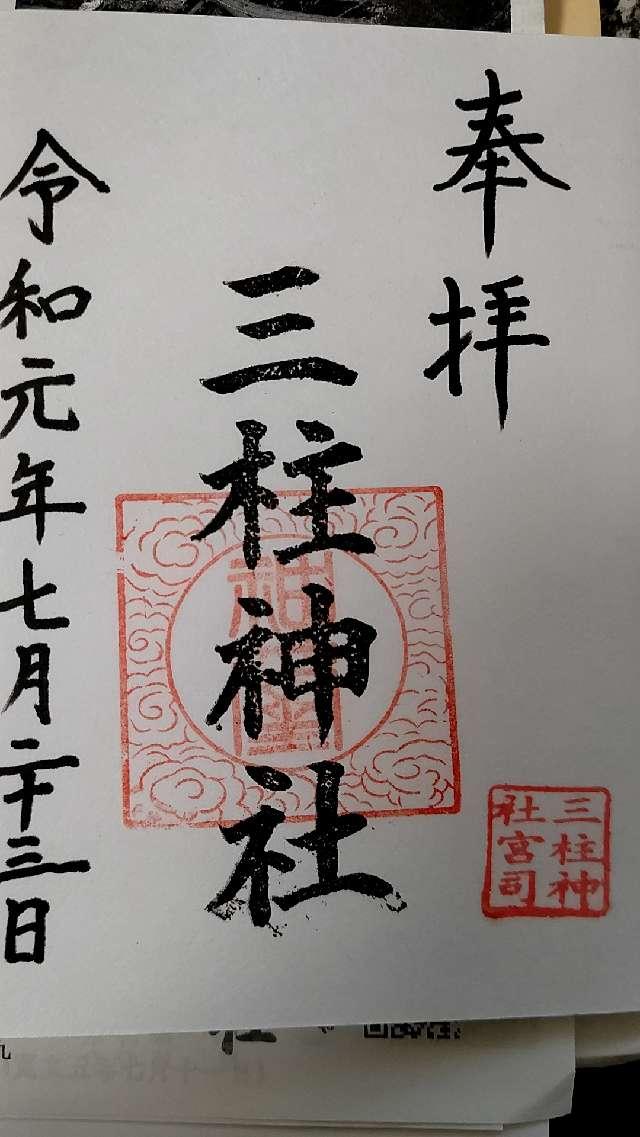 奉拝
三柱神社
令和元年七月二十三日
三柱神
社宮司